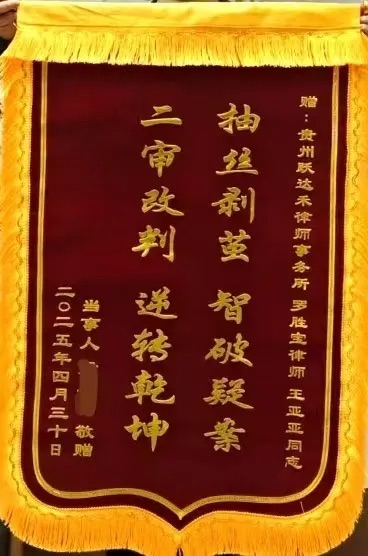 赠：贵州跃达禾律师事务所 罗胜宝律师 王亚亚同志
抽丝剥茧 智破疑案
二审改判 逆转乾坤
当事人 敬赠
二〇二五年四月三十日